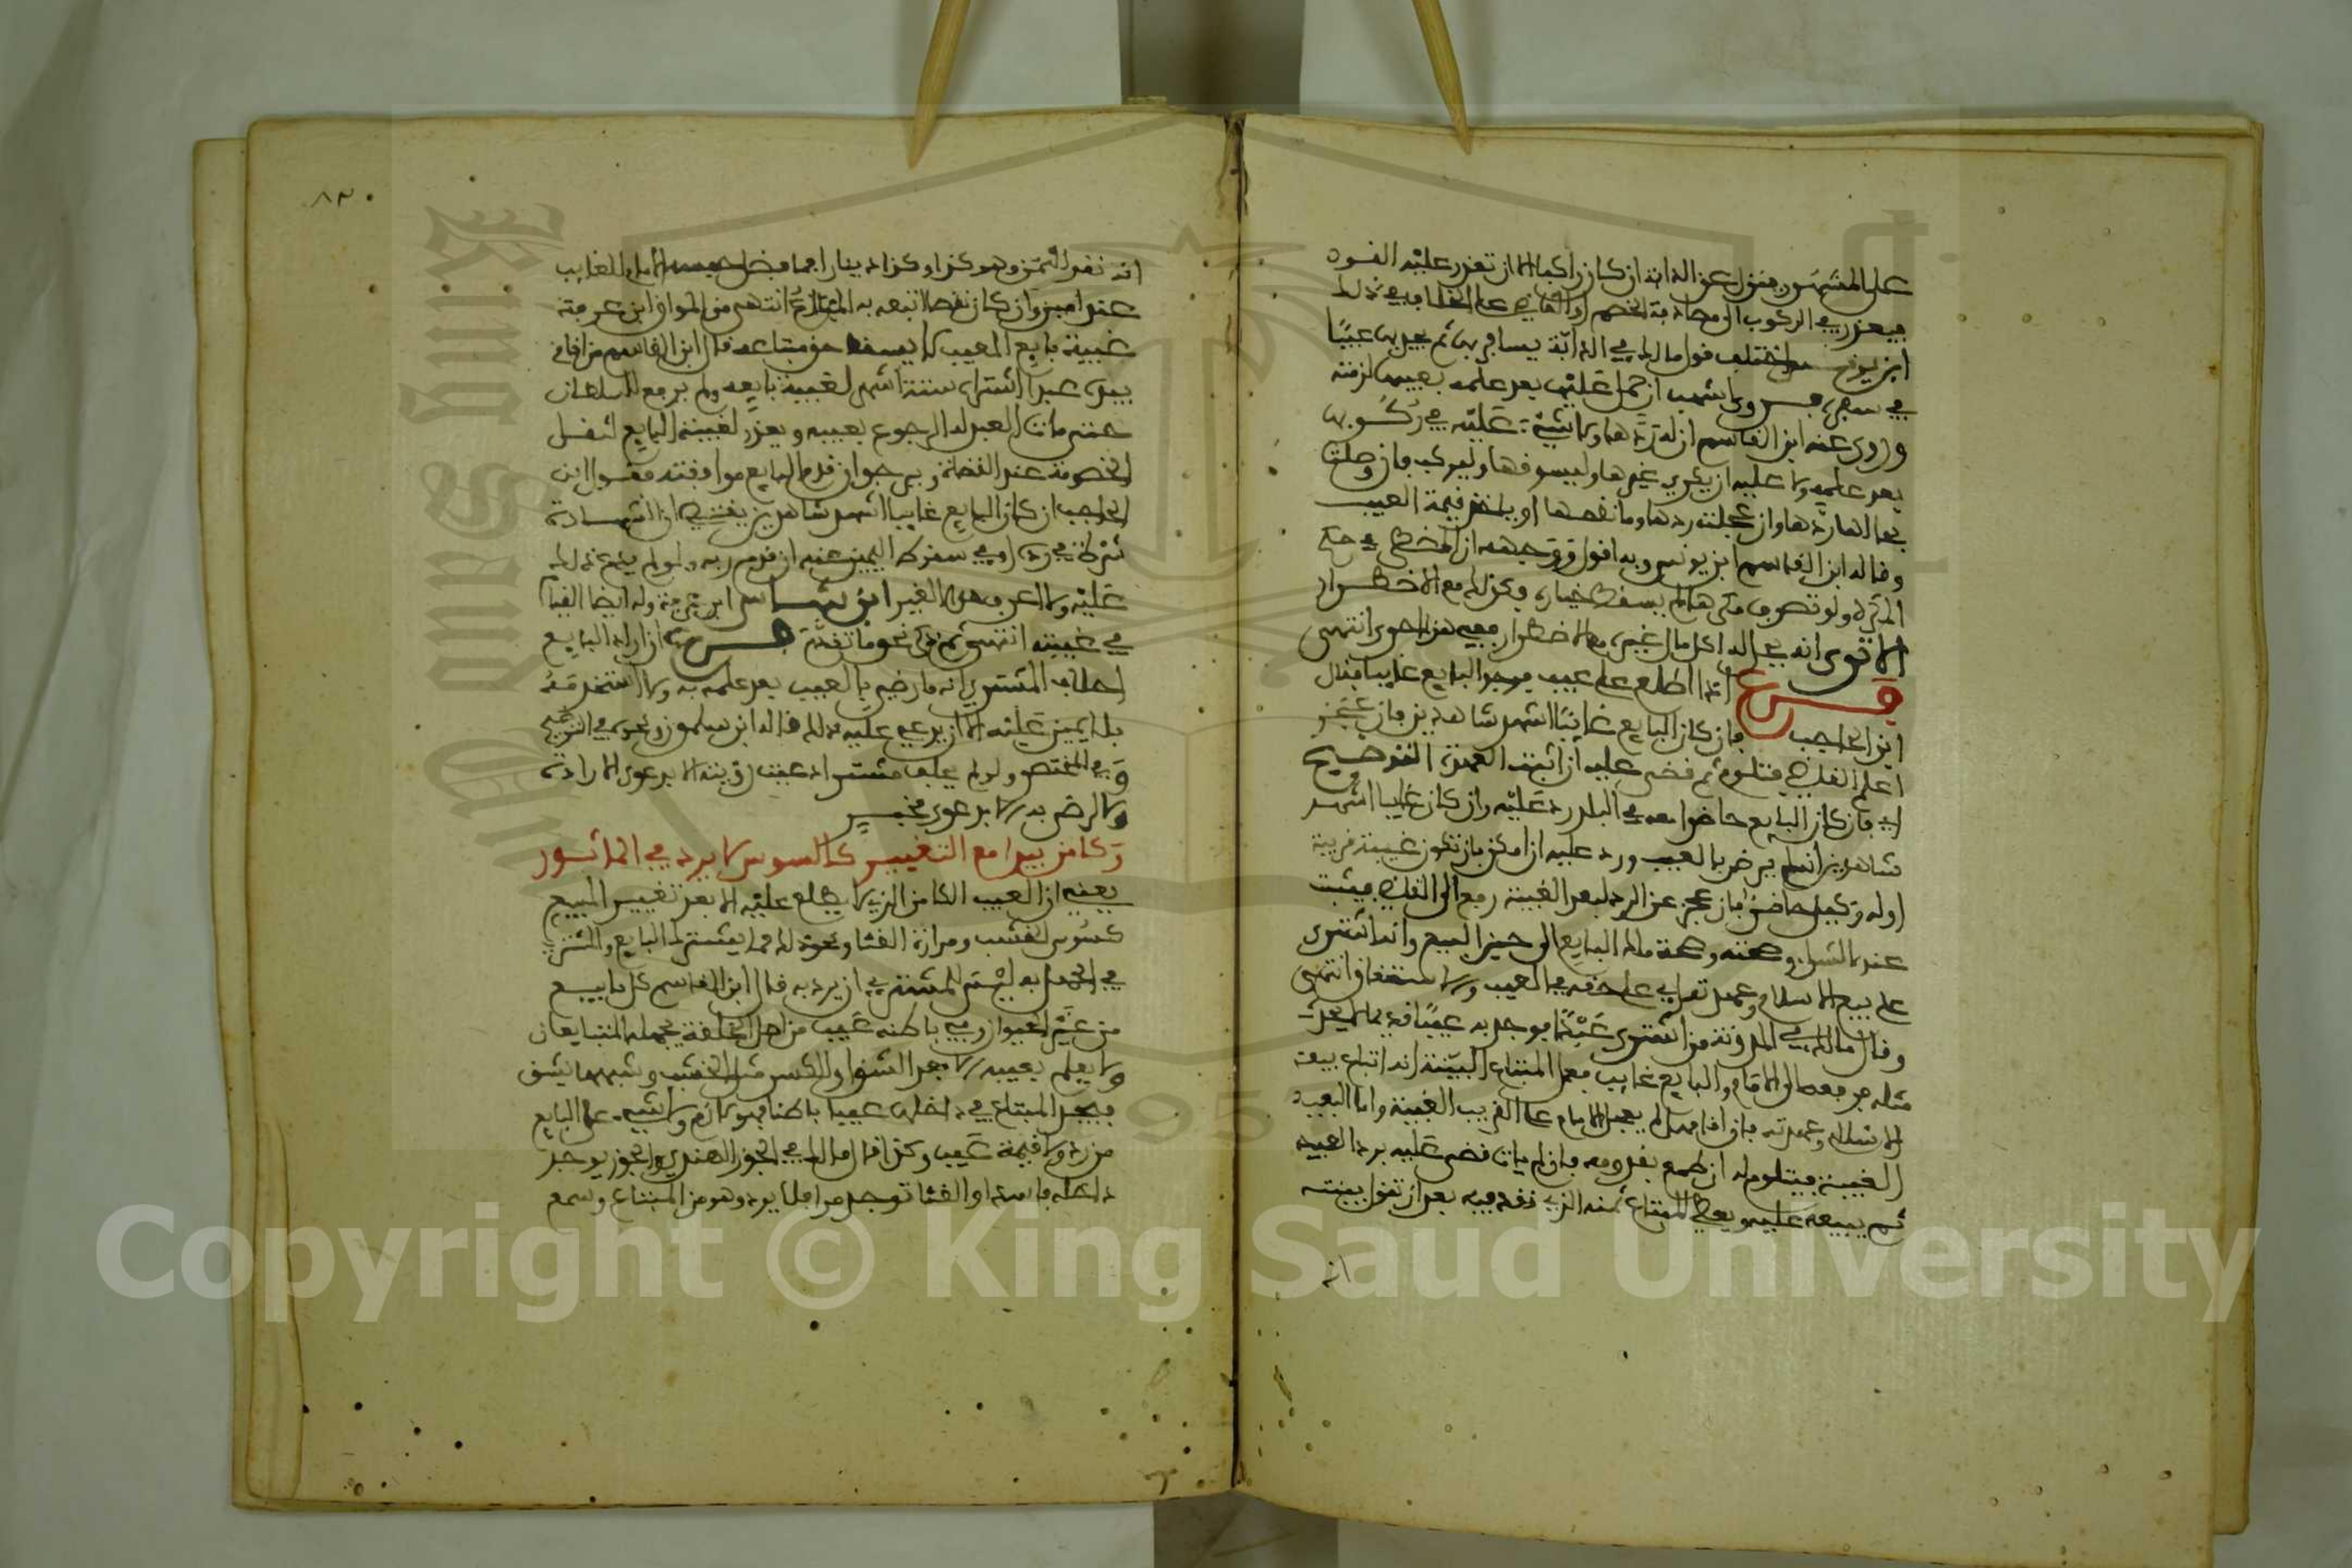 على المشهور فينزل عن الدابة ان كان راكبا الا ان تعذر عليه القود
فيعذر في الركوب الى مصادفة الخصم او القاضي على الخلاف في ذلك
ابن يونس واختلف قول مالك في الدابة يسافر بها ثم يجد بها عيبا
في سفره فروى اشهب ان حمل عليها بعد علمه بعيبها لزمته
وروى عنه ابن القاسم ان له ردها ولا شيء عليه في ركوبها
بعد علمه ولا عليه ان يكري غيرها وليسوقها وليركب فان وصلت
بحالها ردها وان عجفت ردها وما نقصها او ياخذ قيمة العيب
وقاله ابن القاسم ابن يونس وبه اقول ووجهه ان المضطر في حكم
المكره ولو تصرف مكرها لم يسقط خياره وكذلك مع الاضطرار
الا ترى انه يجوز له اكل مال غيره مع الاضطرار ففيه هذا احرى انتهى
فرع اذا اطلع على عيب فوجد البايع غايبا فقال
ابن الحاجب فان كان البايع غائبا اشهد شاهدين فان عجز
اعلم القاضي فتلوم ثم قضى عليه ان اثبت العهدة التوضيح
اي فان كان البايع حاضرا معه في البلد رد عليه وان كان غايبا اشهد
شاهدين انه لم يرض بالعيب ورد عليه ان امكن بان تكون غيبته قريبة
او له وكيل حاضر فان عجز عن الرد لبعد الغيبة رفع الى القاضي فيثبت
عنده الشراء وصحته وصحة ملك البايع الى حين البيع وانه اشترى
على بيع الاسلام وعهدته
وقال مالك في المدونة من اشترى عبدا فوجد به عيبا قديما لا يحدث
مثله فرفعه الى الامام والبايع غايب فعلى المبتاع البينة انه ابتاع بيع
الاسلام وعهدته فان اقامها لم يعجل الامام على القريب الغيبة واما البعيد
الغيبة فيتلوم له ان طمع بقدومه فان لم يات قضى عليه برد العبد
ثم يبيعه عليه ويعطي المبتاع ثمنه الذي نقد فيه بعد ان تقول بينته
انه
٨٣٠
انه نقد الثمن وهو كذا وكذا دينارا فما فضل حبسه الامام للغايب
عند امين وان كان نقصا اتبعه به المبتاع انتهى من المواق ابن عرفة
غيبة بايع المعيب لا يسقط حق مبتاعه قال ابن القاسم من اقام
بيده عبدا اشتراه ستة اشهر لغيبة بايعه ولم يرفع للسلطان
حتى مات العبد له الرجوع بعيبه ويعذر لغيبة البايع لثقل
الخصومة عند القضاة ويرجو ان قدم البايع موافقته فقول ابن
الحاجب ان كان البايع غايبا اشهد شاهدين يقتضي ان الشهادة
شرط في رده او في سقوط اليمين عنه ان قدم ربه ولو لم يدع ذلك
عليه ولا اعرفه لغير ابن شاس ابن عرفة وله ايضا القيام
في غيبته انتهى ثم ذكر نحو ما تقدم فرع ان اراد البايع
احلاف المشتري انه ما رضي بالعيب بعد علمه به ولا استخدمه
بل لا يمين عليه الا ان يدعي عليه ذلك قاله ابن سلمون ونحوه في التوضيح
وفي المختصر ولم يحلف مشتر ادعيت رؤيته الا بدعوى الاراءة
ولا الرضى به الا بدعوى مخبر
وكامن يبدو مع التغيير كالسوس لا يرد في الماثور
يعني ان العيب الكامن الذي لا يطلع عليه الا بعد تغيير المبيع
كسوس الخشب ومرارة القثا ونحو ذلك مما يشترك البايع والمشتري
في الجهل به ليس للمشتري ان يرد به قال ابن القاسم كل ما بيع
من غير الحيوان وفي باطنه عيب من اصل الخلقة يجهله المتبايعان
ولا يعلم بعيبه الا بعد الشق او الكسر مثل الخشب وشبهه ما يشق
فيجد المبتاع في داخله عيبا باطنا فهو لازم ولا شيء على البايع
من رد ولا قيمة عيب وكذا قال مالك في الجوز الهندي والجوز يوجد
داخله فاسدا او القثا توجد مرا فلا يرد وهو من المبتاع وسمع